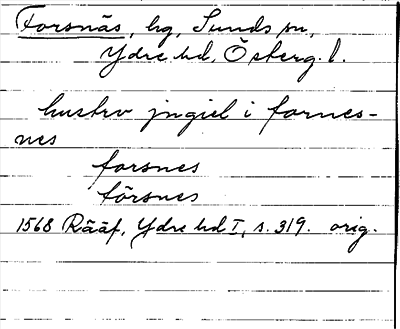 Forsnäs, hg, Sunds sn,
Ydre hd, Österg. l.
hustrv jngiel i fornes-
nes
forsnes
förSnes
1568 Rääf, Ydre hd I, s. 319. orig.